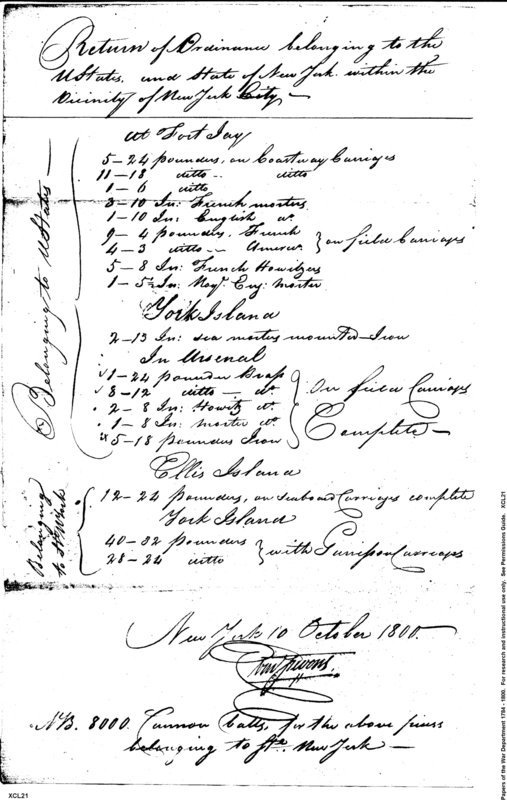 Return of Ordinance belonging to the
UStates, and State of New York within the
Vicinity of New York City —
Belonging to UStates —
At Fort Jay
5 – 24 pounders, on Coastway Carriages
11 – 18 ditto .. ditto
1 – 6 ditto
3 – 10 In: French morters
1 – 10 In: English do.
9 – 4 pounders, French
4 – 3 ditto .. Americ. } on field Carriages
5 – 8 In: French Howitzers
1 – 5½ In: Eng: morter
York Island
2 – 13 In: sea morters mounted – Iron
In Arsenal
1 – 24 pounder Brass
8 – 12 ditto — do.
2 – 8 In: Howitz do.
1 – 8 In: morter do.
5 – 18 pounders Iron
} On field Carriages
Complete —
Belonging
to St. N York
Ellis Island
12 – 24 pounders, on Seaboard Carriages complete
York Island
40 – 32 pounders
28 – 24 ditto } with Garrison Carriages
New York 10 October 1800.
NB. 8000. Cannon balls, for the above pieces
belonging to Ste. New York —
XCL21
Papers of the War Department 1784 - 1800. For research and instructional use only. See Permissions Guide. XCL21